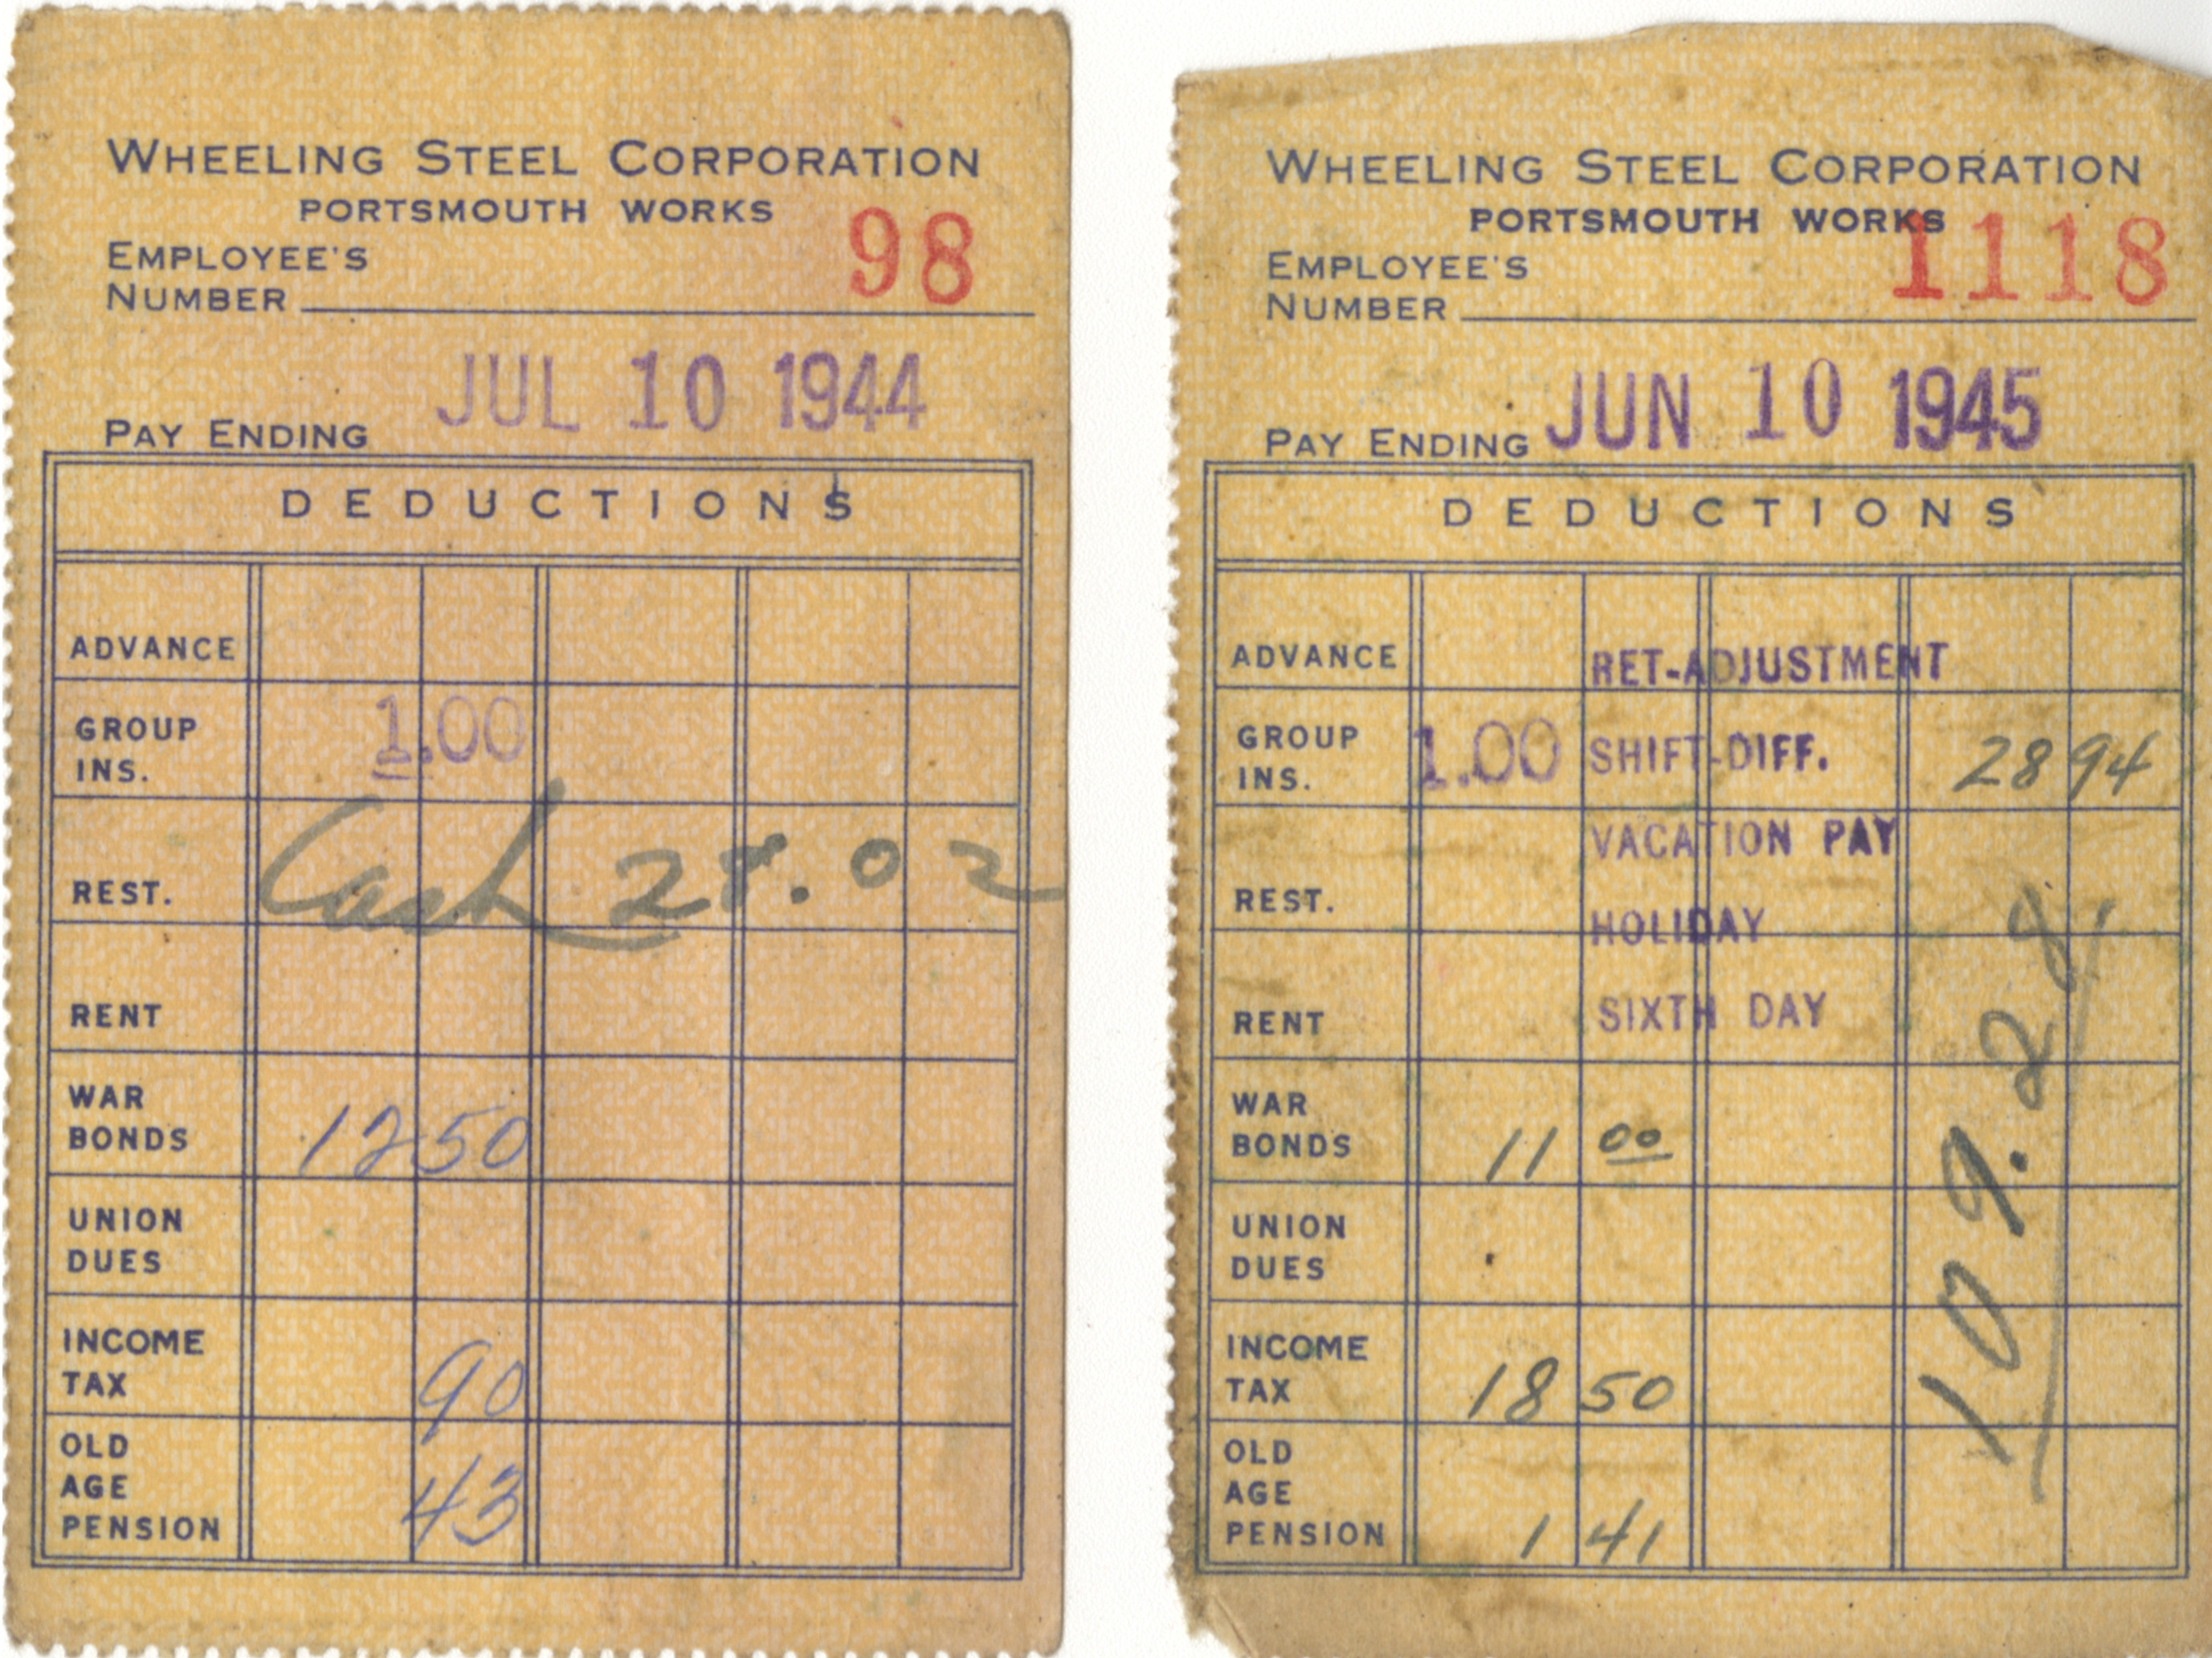 WHEELING STEEL CORPORATION
PORTSMOUTH WORKS
EMPLOYEE'S
NUMBER 98
PAY ENDING JUL 10 1944
DEDUCTIONS
ADVANCE
GROUP
INS. 1.00
REST. Cash 28.02
RENT
WAR
BONDS 12 50
UNION
DUES
INCOME
TAX 90
OLD
AGE
PENSION 43
WHEELING STEEL CORPORATION
PORTSMOUTH WORKS
EMPLOYEE'S
NUMBER 1118
PAY ENDING JUN 10 1945
DEDUCTIONS
ADVANCE RET-ADJUSTMENT
GROUP
INS. 1.00 SHIFT-DIFF. 28 94
VACATION PAY
REST.
HOLIDAY
RENT SIXTH DAY
WAR
BONDS 11 00
109.28
UNION
DUES
INCOME
TAX 18 50
OLD
AGE
PENSION 1 41